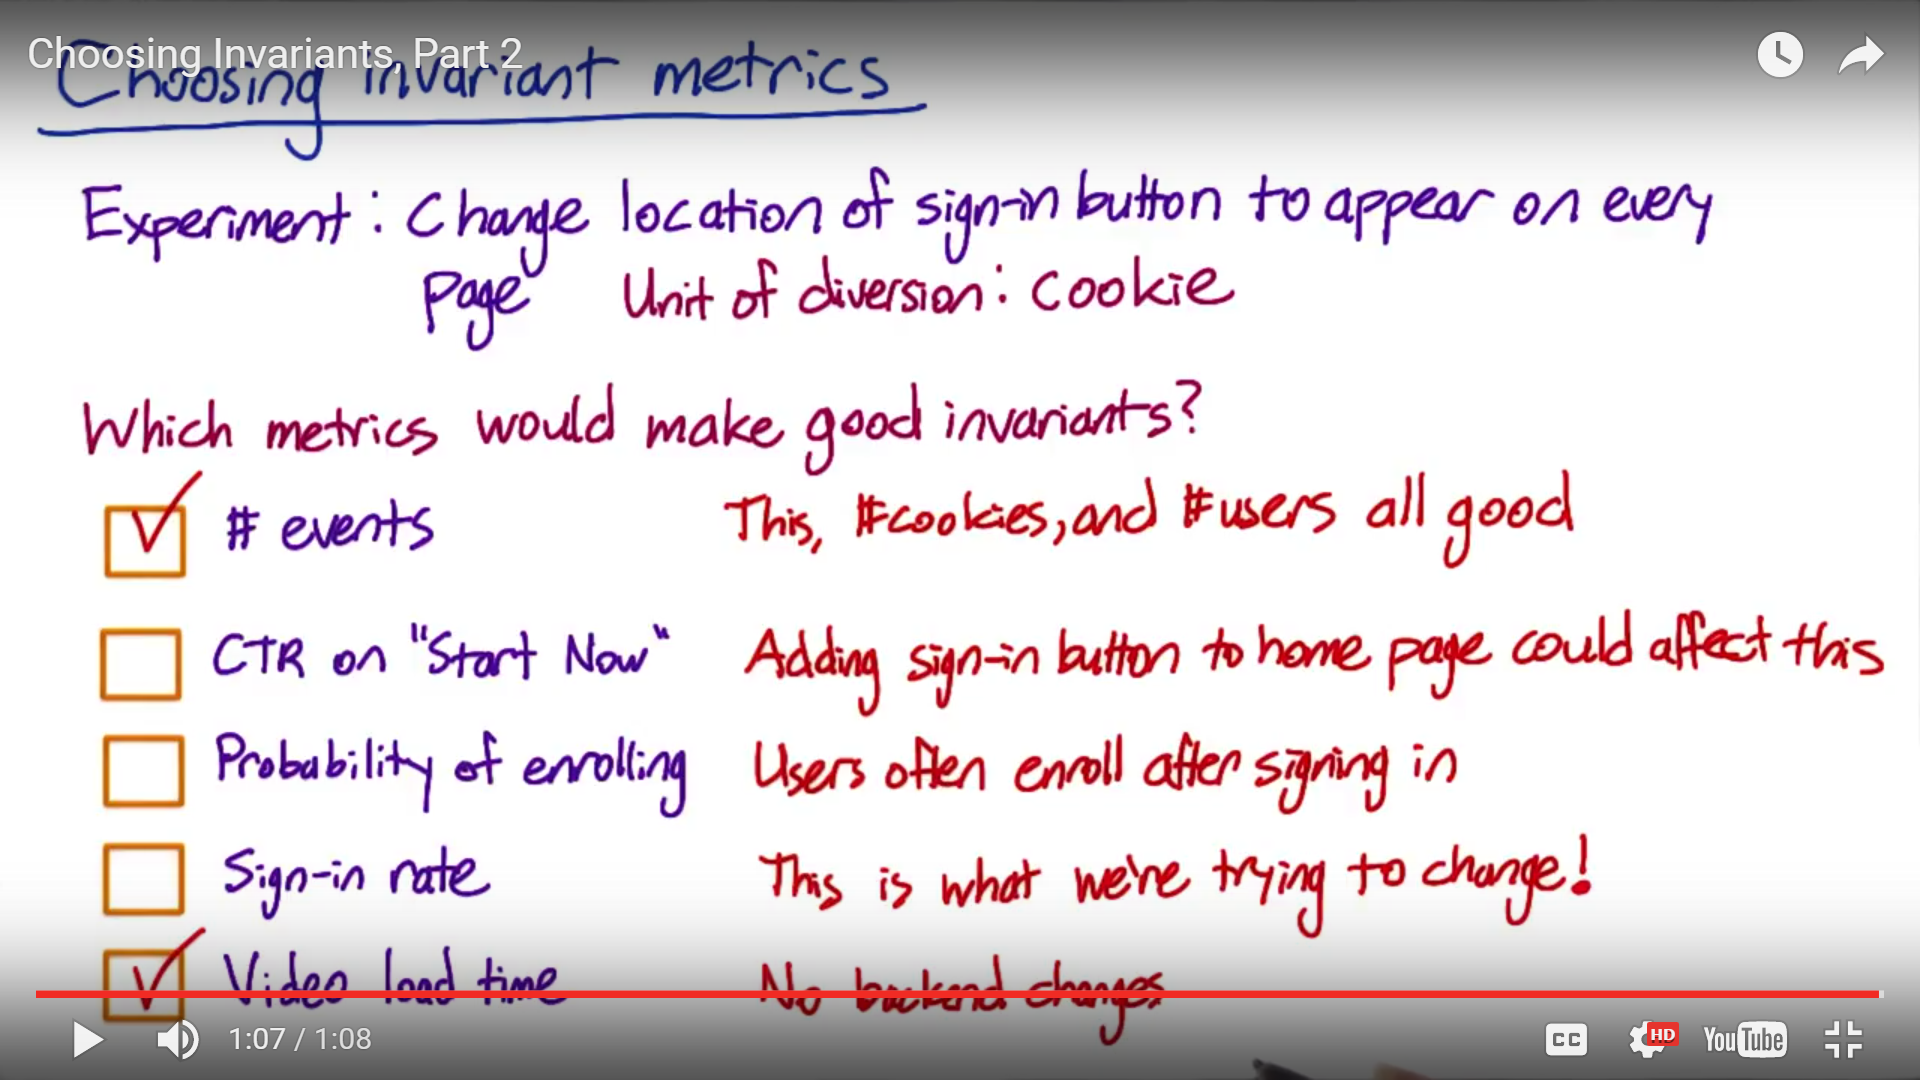 Choosing Invariants, Part 2
Choosing invariant metrics
Experiment: Change location of sign-in button to appear on every
page Unit of diversion: cookie
Which metrics would make good invariants?
# events This, #cookies, and #users all good
CTR on "Start Now" Adding sign-in button to home page could affect this
Probability of enrolling Users often enroll after signing in
Sign-in rate This is what we're trying to change!
Video load time No backend changes
1:07 / 1:08 CC HD YouTube